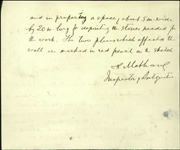 and in preparing a space, about 5 m wide
by 20 m long for depositing the stones needed for
the work. The two places which affected the
wall are marked in red pencil on the sketch
Inspector of